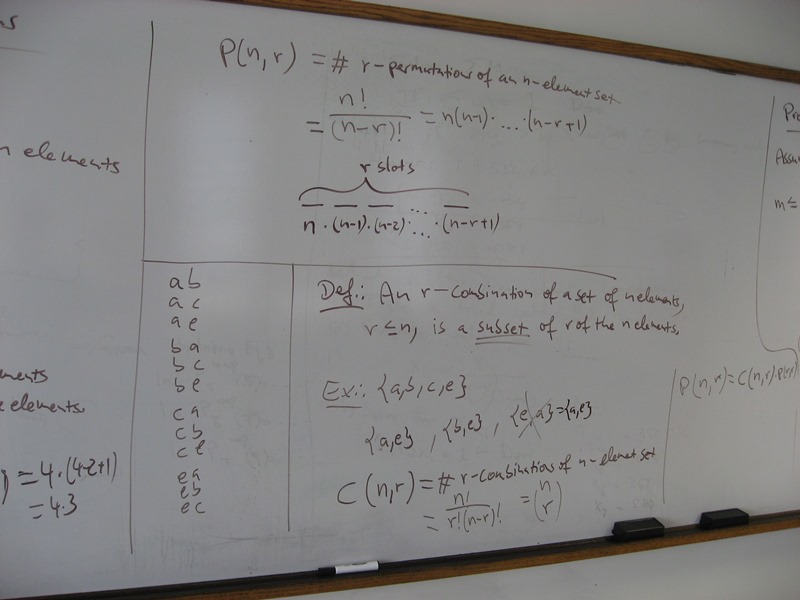 n elements
ments
e elements.
) = 4·(4-2+1)
= 4·3
P(n,r) = # r-permutations of an n-element set
= n!/(n-r)! = n(n-1)· ... ·(n-r+1)
r slots
n·(n-1)·(n-2)· ... ·(n-r+1)
ab
ac
ae
ba
bc
be
ca
cb
ce
ea
eb
ec
Def.: An r-combination of a set of n elements,
r ≤ n, is a subset of r of the n elements.
Ex.: {a,b,c,e}
{a,e}, {b,e}, {e,a}={a,e}
C(n,r) = # r-combinations of n-element set
= n!/r!(n-r)! = (n r)
Pro
Assum
m ≤
P(n,r)=C(n,r)·P(r,r)